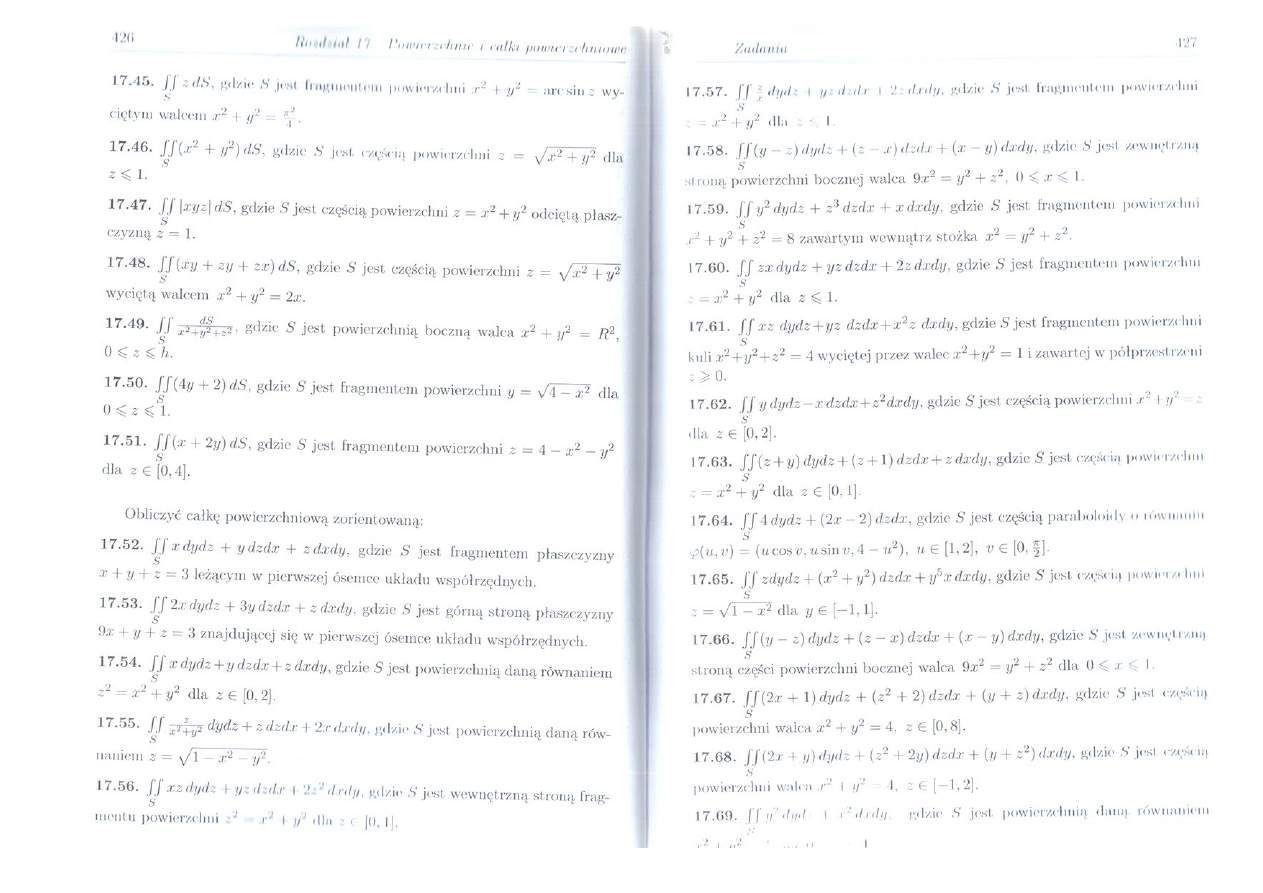 426
Rozdział 17. Powierzchnie i całki powierzchniowe
17.45. ∬ z dS, gdzie S jest fragmentem powierzchni x² + y² = arc sin z wy-
S
ciętym walcem x² + y² = π²/4.
17.46. ∬(x² + y²) dS, gdzie S jest częścią powierzchni z = √(x² + y²) dla
S
z ⩽ 1.
17.47. ∬ |xyz| dS, gdzie S jest częścią powierzchni z = x² + y² odciętą płasz-
S
czyzną z = 1.
17.48. ∬(xy + zy + zx) dS, gdzie S jest częścią powierzchni z = √(x² + y²)
S
wyciętą walcem x² + y² = 2x.
17.49. ∬ dS/(x²+y²+z²), gdzie S jest powierzchnią boczną walca x² + y² = R²,
S
0 ⩽ z ⩽ h.
17.50. ∬(4y + 2) dS, gdzie S jest fragmentem powierzchni y = √(4 − x²) dla
S
0 ⩽ z ⩽ 1.
17.51. ∬(x + 2y) dS, gdzie S jest fragmentem powierzchni z = 4 − x² − y²
S
dla z ∈ [0, 4].
Obliczyć całkę powierzchniową zorientowaną:
17.52. ∬ x dydz + y dzdx + z dxdy, gdzie S jest fragmentem płaszczyzny
S
x + y + z = 3 leżącym w pierwszej ósemce układu współrzędnych.
17.53. ∬ 2x dydz + 3y dzdx + z dxdy, gdzie S jest górną stroną płaszczyzny
S
9x + y + z = 3 znajdującej się w pierwszej ósemce układu współrzędnych.
17.54. ∬ x dydz + y dzdx + z dxdy, gdzie S jest powierzchnią daną równaniem
S
z² = x² + y² dla z ∈ [0, 2].
17.55. ∬ z/(x²+y²) dydz + z dzdx + 2x dxdy, gdzie S jest powierzchnią daną rów-
S
naniem z = √(1 − x² − y²).
17.56. ∬ xz dydz + yz dzdx + 2z² dxdy, gdzie S jest wewnętrzną stroną frag-
S
mentu powierzchni z² = x² + y² dla z ∈ [0, 1].
Zadania
427
17.57. ∬ z/x dydz + yz dzdx + 2z dxdy, gdzie S jest fragmentem powierzchni
S
z = x² + y² dla z ⩽ 1.
17.58. ∬(y − z) dydz + (z − x) dzdx + (x − y) dxdy, gdzie S jest zewnętrzną
S
stroną powierzchni bocznej walca 9x² = y² + z², 0 ⩽ x ⩽ 1.
17.59. ∬ y² dydz + z³ dzdx + x dxdy, gdzie S jest fragmentem powierzchni
S
x² + y² + z² = 8 zawartym wewnątrz stożka x² = y² + z².
17.60. ∬ zx dydz + yz dzdx + 2z dxdy, gdzie S jest fragmentem powierzchni
S
z = x² + y² dla z ⩽ 1.
17.61. ∬ xz dydz + yz dzdx + x²z dxdy, gdzie S jest fragmentem powierzchni
S
kuli x² + y² + z² = 4 wyciętej przez walec x² + y² = 1 i zawartej w półprzestrzeni
z ⩾ 0.
17.62. ∬ y dydz − x dzdx + z² dxdy, gdzie S jest częścią powierzchni x² + y² = z
S
dla z ∈ [0, 2].
17.63. ∬(z + y) dydz + (z + 1) dzdx + z dxdy, gdzie S jest częścią powierzchni
S
z = x² + y² dla z ∈ [0, 1].
17.64. ∬ 4 dydz + (2x − 2) dzdx, gdzie S jest częścią paraboloidy o równaniu
S
φ(u, v) = (u cos v, u sin v, 4 − u²), u ∈ [1, 2], v ∈ [0, π/2].
17.65. ∬ zdydz + (x² + y²) dzdx + y⁵x dxdy, gdzie S jest częścią powierzchni
S
z = √(1 − x²) dla y ∈ [−1, 1].
17.66. ∬(y − z) dydz + (z − x) dzdx + (x − y) dxdy, gdzie S jest zewnętrzną
S
stroną części powierzchni bocznej walca 9x² = y² + z² dla 0 ⩽ x ⩽ 1.
17.67. ∬(2x + 1) dydz + (z² + 2) dzdx + (y + z) dxdy, gdzie S jest częścią
S
powierzchni walca x² + y² = 4, z ∈ [0, 8].
17.68. ∬(2x + y) dydz + (z² + 2y) dzdx + (y + z²) dxdy, gdzie S jest częścią
S
powierzchni walca x² + y² = 4, z ∈ [−1, 2].
17.69. gdzie S jest powierzchnią daną równaniem